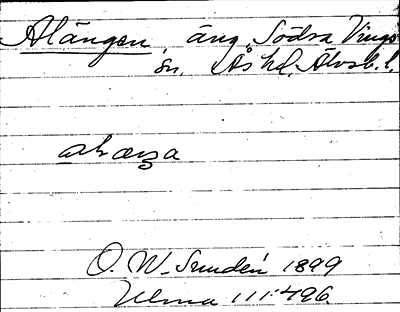 Alängen, äng Södra Vings
sn. Ås hd, Älvsb. l.
O. W. Sundén 1899
Ulma 111:496.